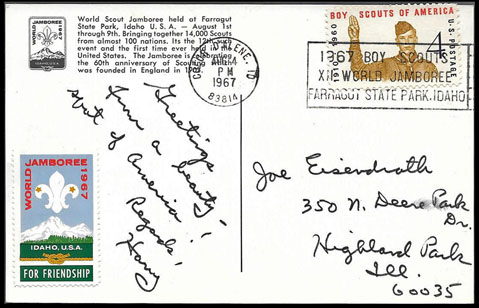 World Scout Jamboree held at Farragut
State Park, Idaho U. S. A. — August 1st
through 9th, Bringing together 14,000 Scouts
from almost 100 nations. Its the 12th such
event and the first time ever held in the
United States. The Jamboree is celebrating
the 60th anniversary of Scouting which
was founded in England in 1907.
BOY SCOUTS OF AMERICA
1960
4
U.S. POSTAGE
COEUR D'ALENE, ID
AUG 4
PM
1967
83814
1967 BOY SCOUTS
XII WORLD JAMBOREE
FARRAGUT STATE PARK, IDAHO
Greetings
from a beauty-
spot of America!
Regards,
Harry
Joe Eisendrath
350 N. Deere Park
Dr.
Highland Park
Ill.
60035
WORLD JAMBOREE 1967
IDAHO, U.S.A.
FOR FRIENDSHIP